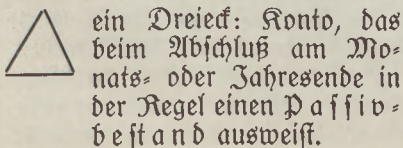 ein Dreieck: Konto, das
beim Abschluß am Mo-
nats- oder Jahresende in
der Regel einen Passiv-
bestand ausweist.